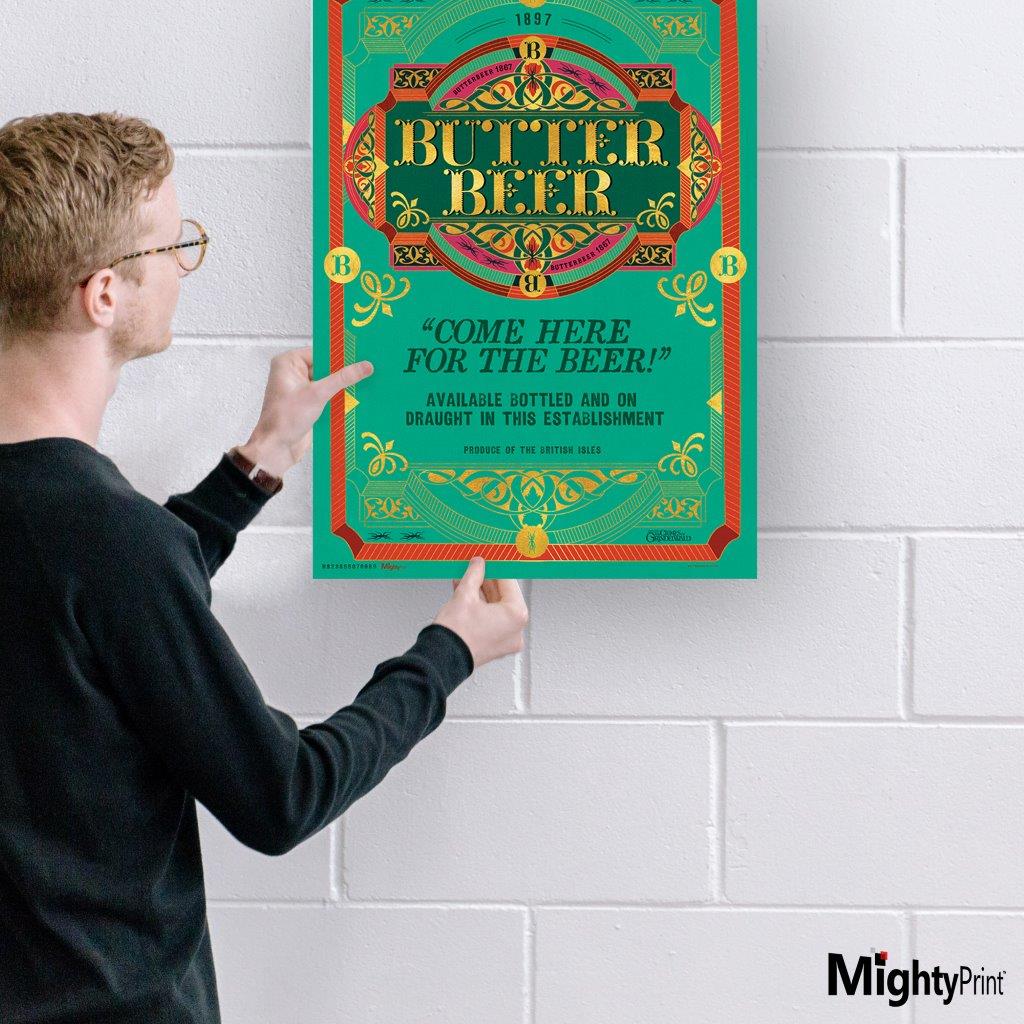 1897
B
BUTTERBEER 1867
BUTTER
BEER
BUTTERBEER 1867
B
B
B
"COME HERE
FOR THE BEER!"
AVAILABLE BOTTLED AND ON
DRAUGHT IN THIS ESTABLISHMENT
PRODUCE OF THE BRITISH ISLES
GRINDELWALD
MightyPrint
MightyPrint